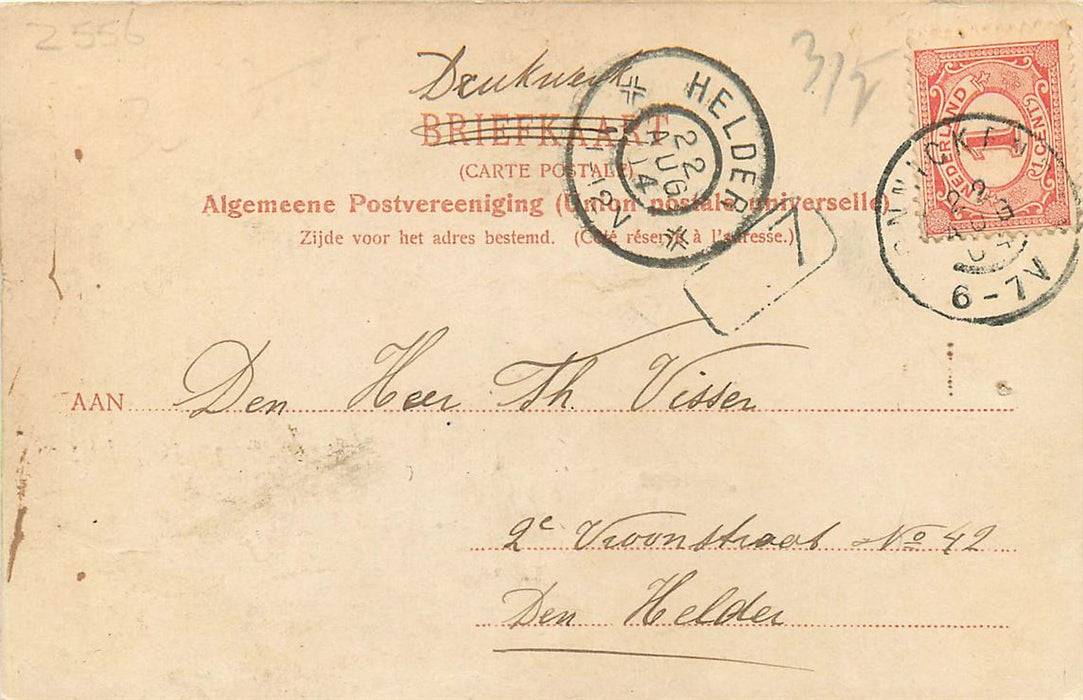 2556
3/5
Drukwerk
BRIEFKAART
(CARTE POSTALE)
Algemeene Postvereeniging (Union postale universelle)
Zijde voor het adres bestemd. (Côté réservé à l'adresse.)
HELDER
22
AUG
14
11-12V
NEDERLAND
1
1 CENT
6-7N
AAN Den Heer Th. Visser
2e Vroonstraat No 42
Den Helder